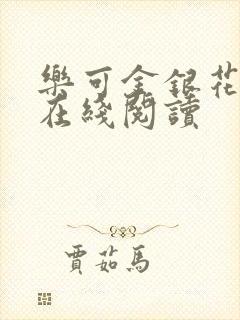 樂可金銀花
在綫閱讀
賈茹馬